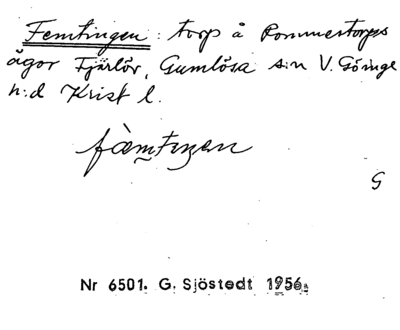 Femtingen: torp å Pommestorps
ägor Fjärlöv, Gumlösa s:n V. Göinge
h:d Krist l.
fæmtiŋen
G
Nr 6501. G. Sjöstedt 1956.